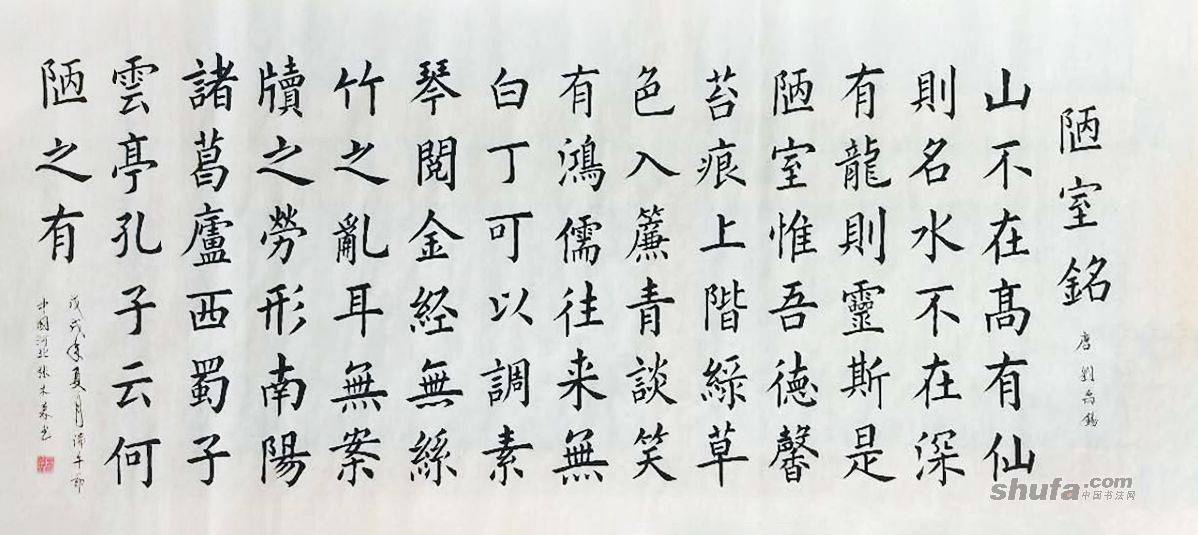 陋室銘
唐劉禹錫
山不在髙有仙
則名水不在深
有龍則靈斯是
陋室惟吾徳馨
苔痕上階綠草
色入簾青談笑
有鴻儒往来無
白丁可以調素
琴閲金経無絲
竹之亂耳無案
牘之勞形南陽
諸葛廬西蜀子
雲亭孔子云何
陋之有
戊戌年夏月端午節
中國河北張木春书
shufa.com
中国书法网